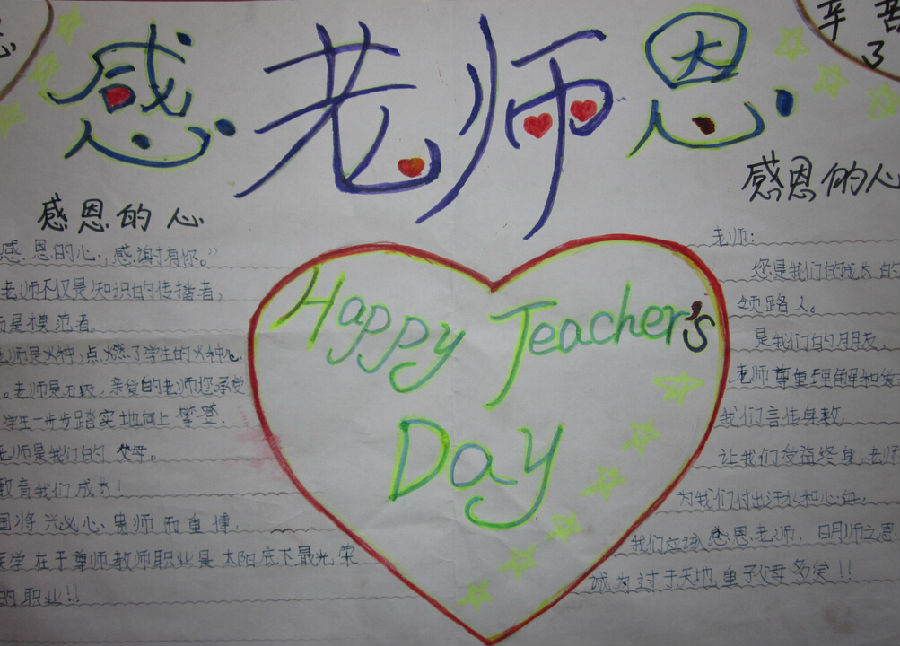 感老师恩
辛苦
了
感恩的心
感恩的心,感谢有你。”
老师不仅是知识的传播者,
是模范者
老师是火种,点燃了学生的火种
。老师是石段,亲爱的老师您承受
学生一步步踏实地向上攀登.
老师是我们的父母。
教育我们成才!
国将兴必心贵师而重傅.
医学在于尊师教师职业是太阳底下最光荣
的职业!!
Happy Teacher's
Day
感恩的心
老师:
您是我们成长的
领路人。
是我们的朋友.
老师尊重理解和
我们言传身教
让我们受益终身,老师
为我们付出汗水和心血.
我们应感恩老师,
成为过于天地,重于父母多矣!!